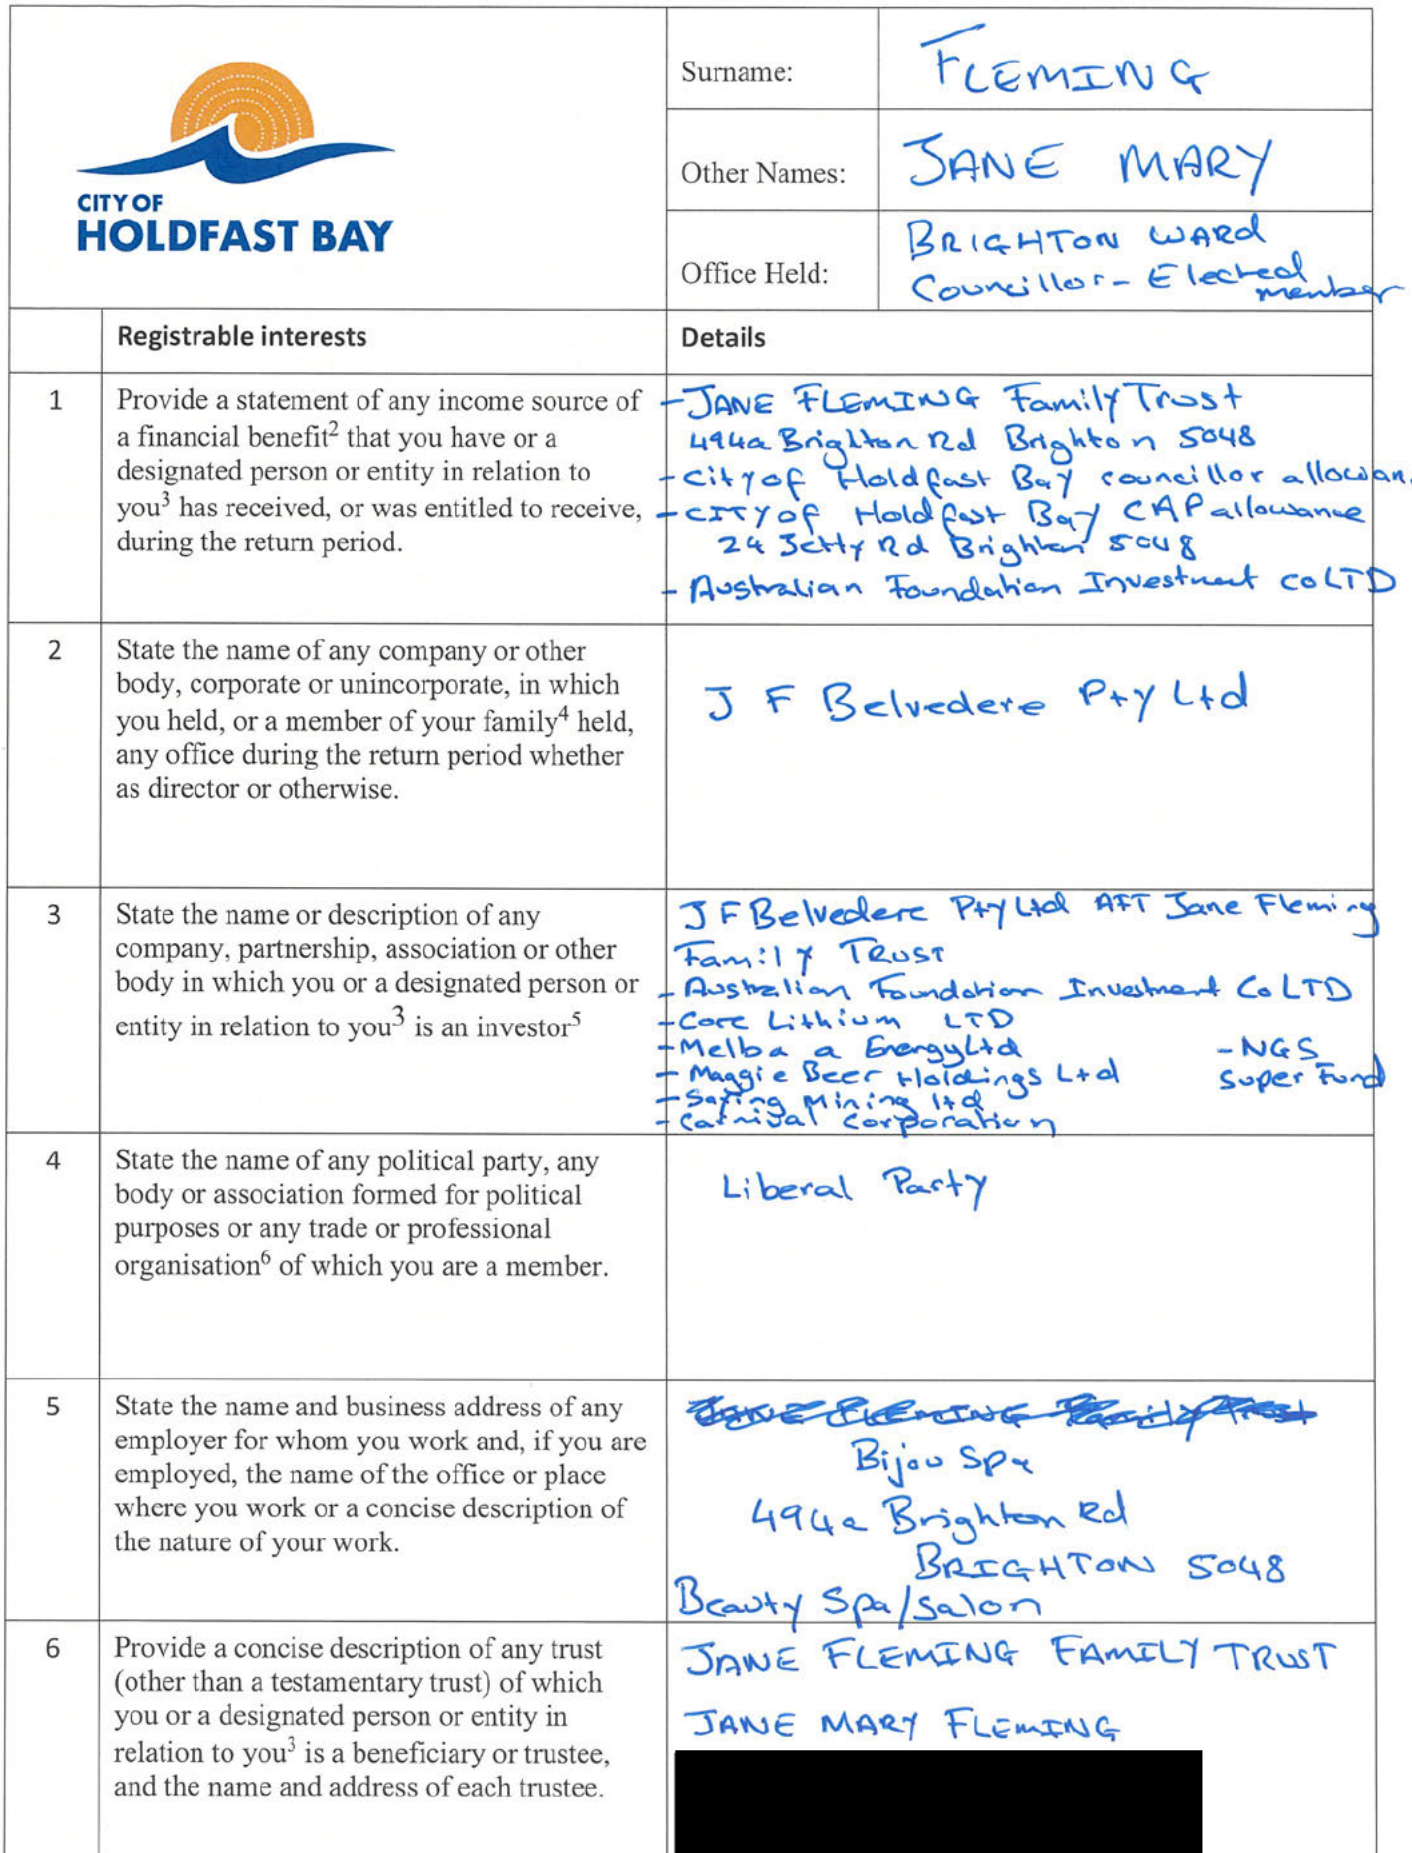 CITY OF
HOLDFAST BAY
Surname:
FLEMING
Other Names:
JANE MARY
Office Held:
BRIGHTON WARD
Councillor - Elected
member
Registrable interests
Details
1
Provide a statement of any income source of
a financial benefit2 that you have or a
designated person or entity in relation to
you3 has received, or was entitled to receive,
during the return period.
- JANE FLEMING Family Trust
494a Brighton Rd Brighton 5048
- City of Holdfast Bay councillor allowan
- CITY OF Holdfast Bay CAP allowance
24 Jetty Rd Brighton 5048
- Australian Foundation Investment Co LTD
2
State the name of any company or other
body, corporate or unincorporate, in which
you held, or a member of your family4 held,
any office during the return period whether
as director or otherwise.
J F Belvedere Pty Ltd
3
State the name or description of any
company, partnership, association or other
body in which you or a designated person or
entity in relation to you3 is an investor5
J F Belvedere Pty Ltd ATT Jane Fleming
Family TRUST
- Australian Foundation Investment Co LTD
- Core Lithium LTD
- Melba a Energy Ltd
- Maggie Beer Holdings Ltd
- Mining ltd
- Carnival Corporation
- NGS
Super Fund
4
State the name of any political party, any
body or association formed for political
purposes or any trade or professional
organisation6 of which you are a member.
Liberal Party
5
State the name and business address of any
employer for whom you work and, if you are
employed, the name of the office or place
where you work or a concise description of
the nature of your work.
JANE FLEMING Family Trust
Bijou Spa
494a Brighton Rd
BRIGHTON 5048
Beauty Spa/salon
6
Provide a concise description of any trust
(other than a testamentary trust) of which
you or a designated person or entity in
relation to you3 is a beneficiary or trustee,
and the name and address of each trustee.
JANE FLEMING FAMILY TRUST
JANE MARY FLEMING